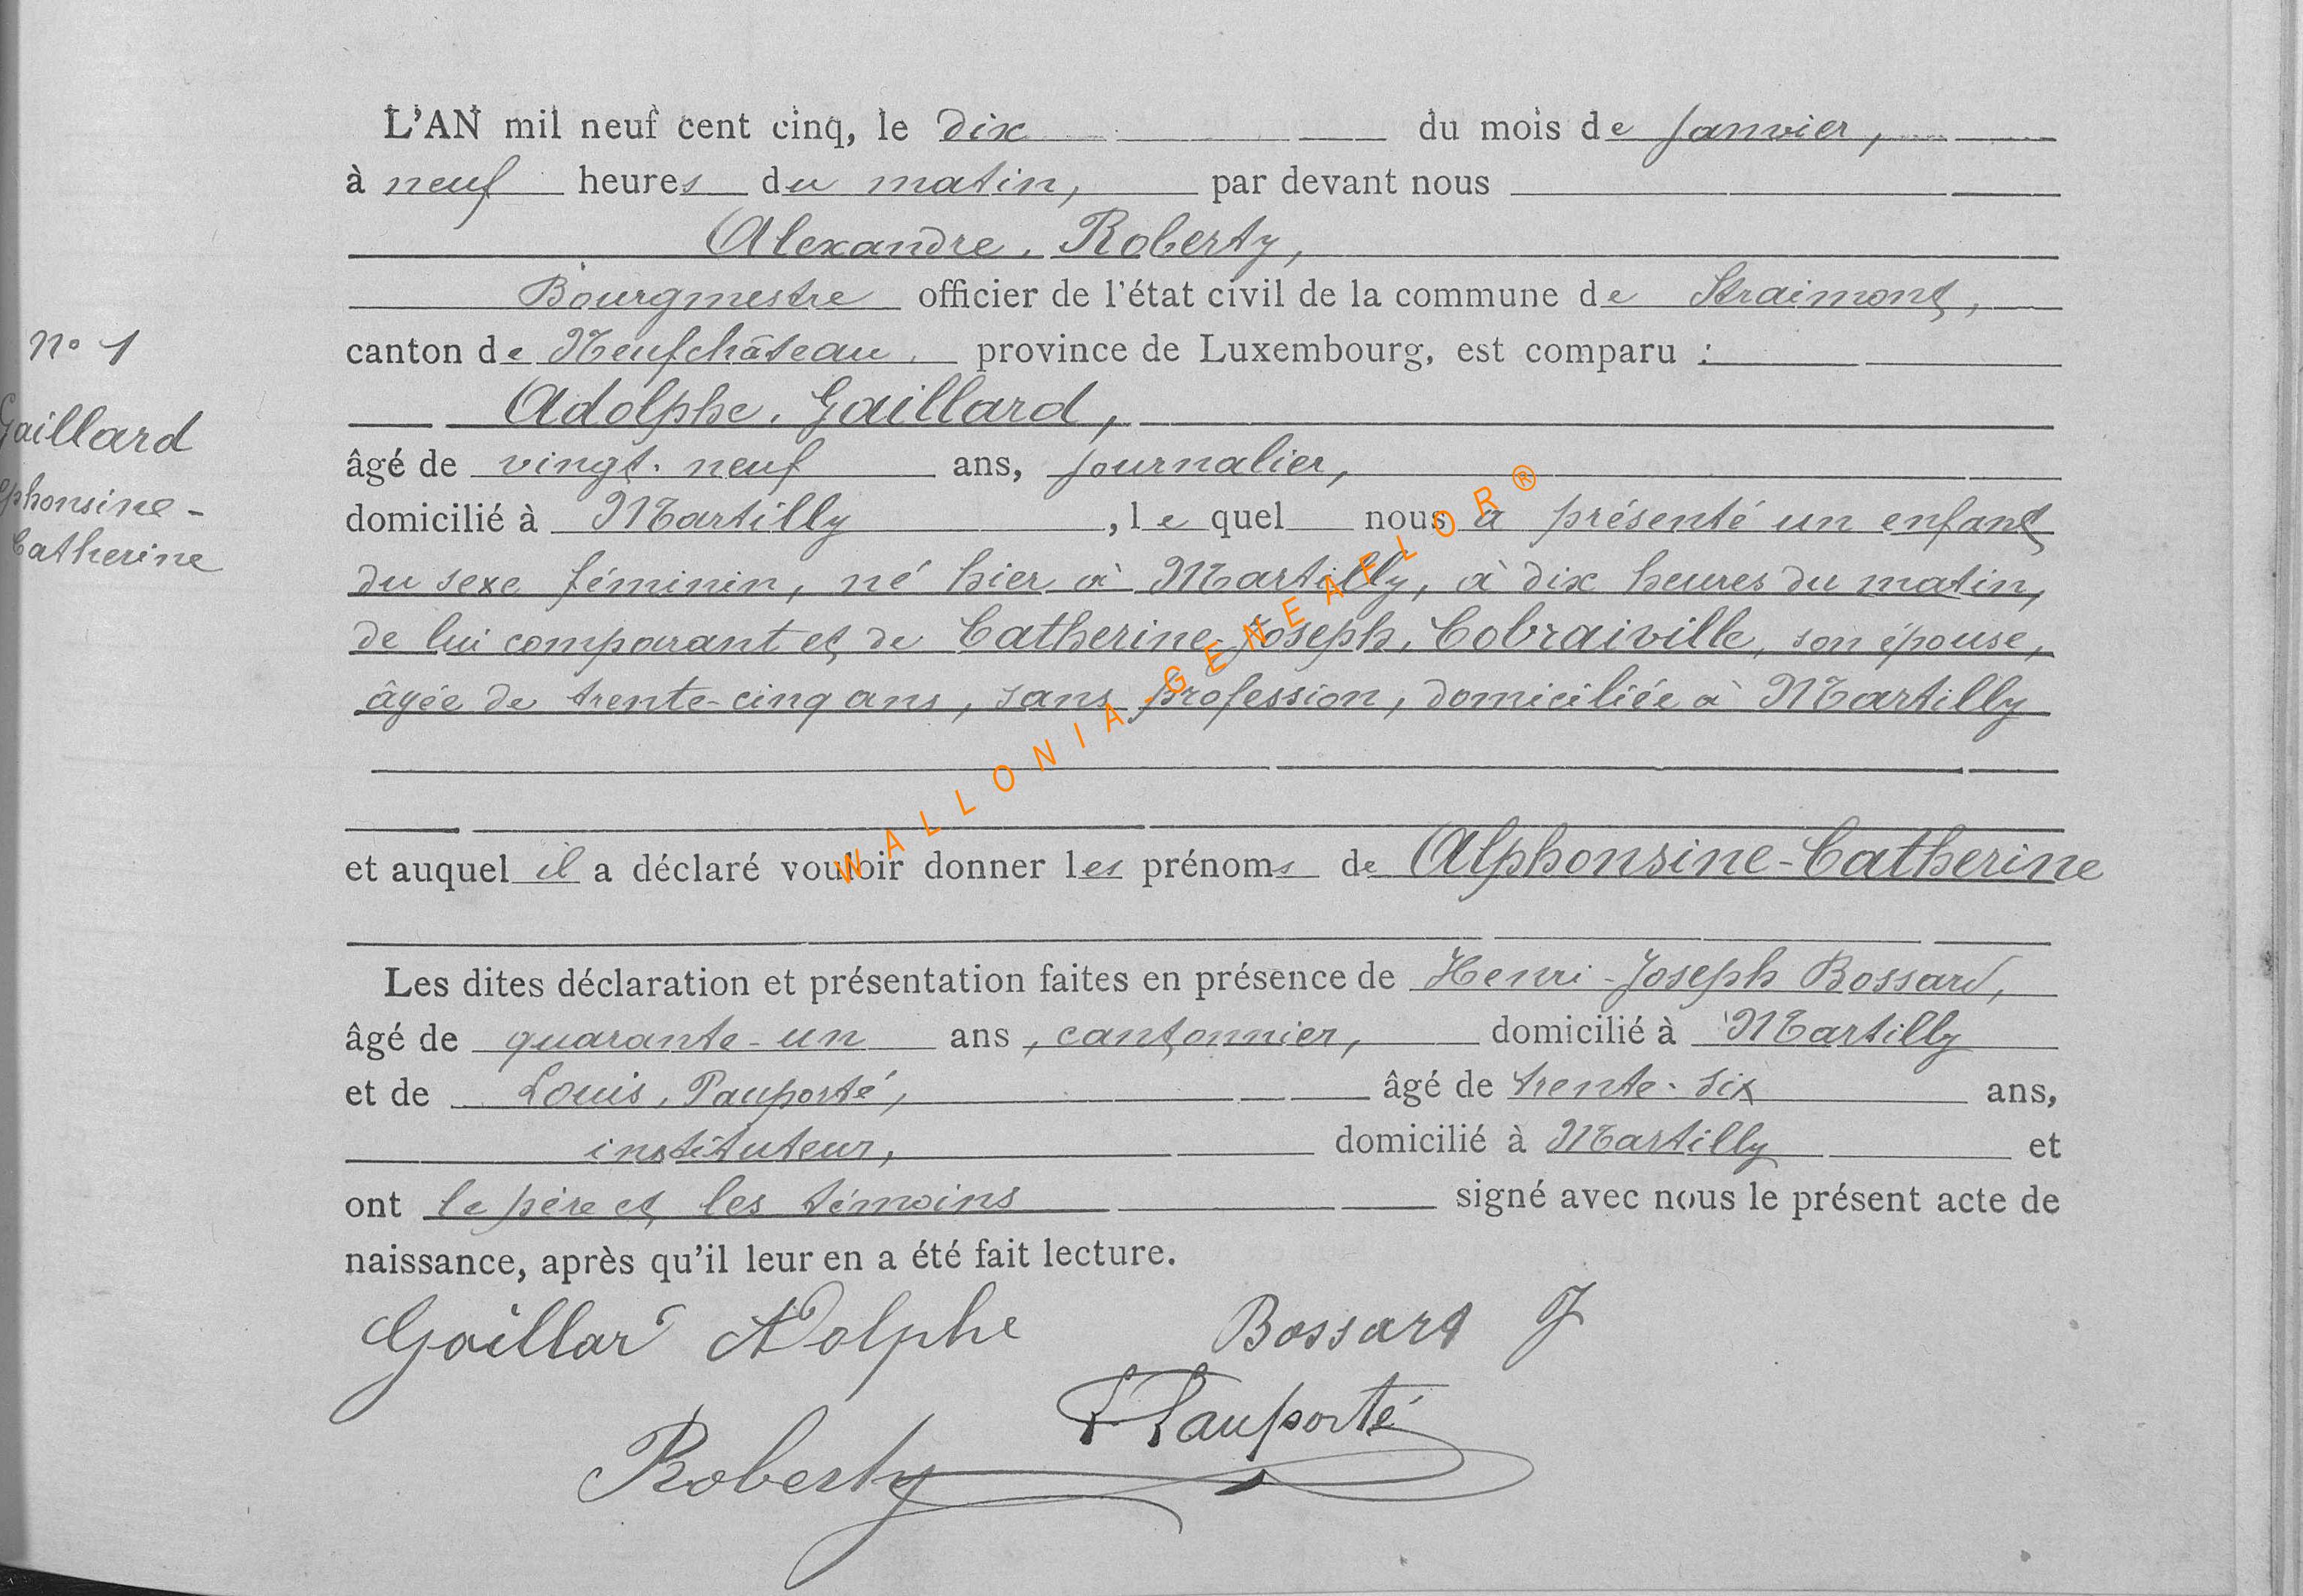 L'AN mil neuf cent cinq, le dix du mois de Janvier,
à neuf heures du matin, par devant nous
Alexandre, Roberty,
Bourgmestre officier de l'état civil de la commune de Straimont,
canton de Neufchâteau, province de Luxembourg, est comparu :
Adolphe, Gaillard,
âgé de vingt-neuf ans, journalier,
domicilié à Martilly, lequel nous a présenté un enfant
du sexe féminin, né hier à Martilly, à dix heures du matin,
de lui comparant et de Catherine-Joseph, Cobraiville, son épouse,
âgée de trente-cinq ans, sans profession, domiciliée à Martilly
et auquel il a déclaré vouloir donner les prénoms de Alphonsine-Catherine
Les dites déclaration et présentation faites en présence de Henri-Joseph Bossard,
âgé de quarante-un ans, cantonnier, domicilié à Martilly
et de Louis, Pauporté, âgé de trente-six ans,
instituteur, domicilié à Martilly et
ont le père et les témoins signé avec nous le présent acte de
naissance, après qu'il leur en a été fait lecture.
Gaillard Adolphe Bossard J
L Pauporté
Roberty
No 1
Gaillard
phonsine-
Catherine
WALLONIA-GENEAFLOR®